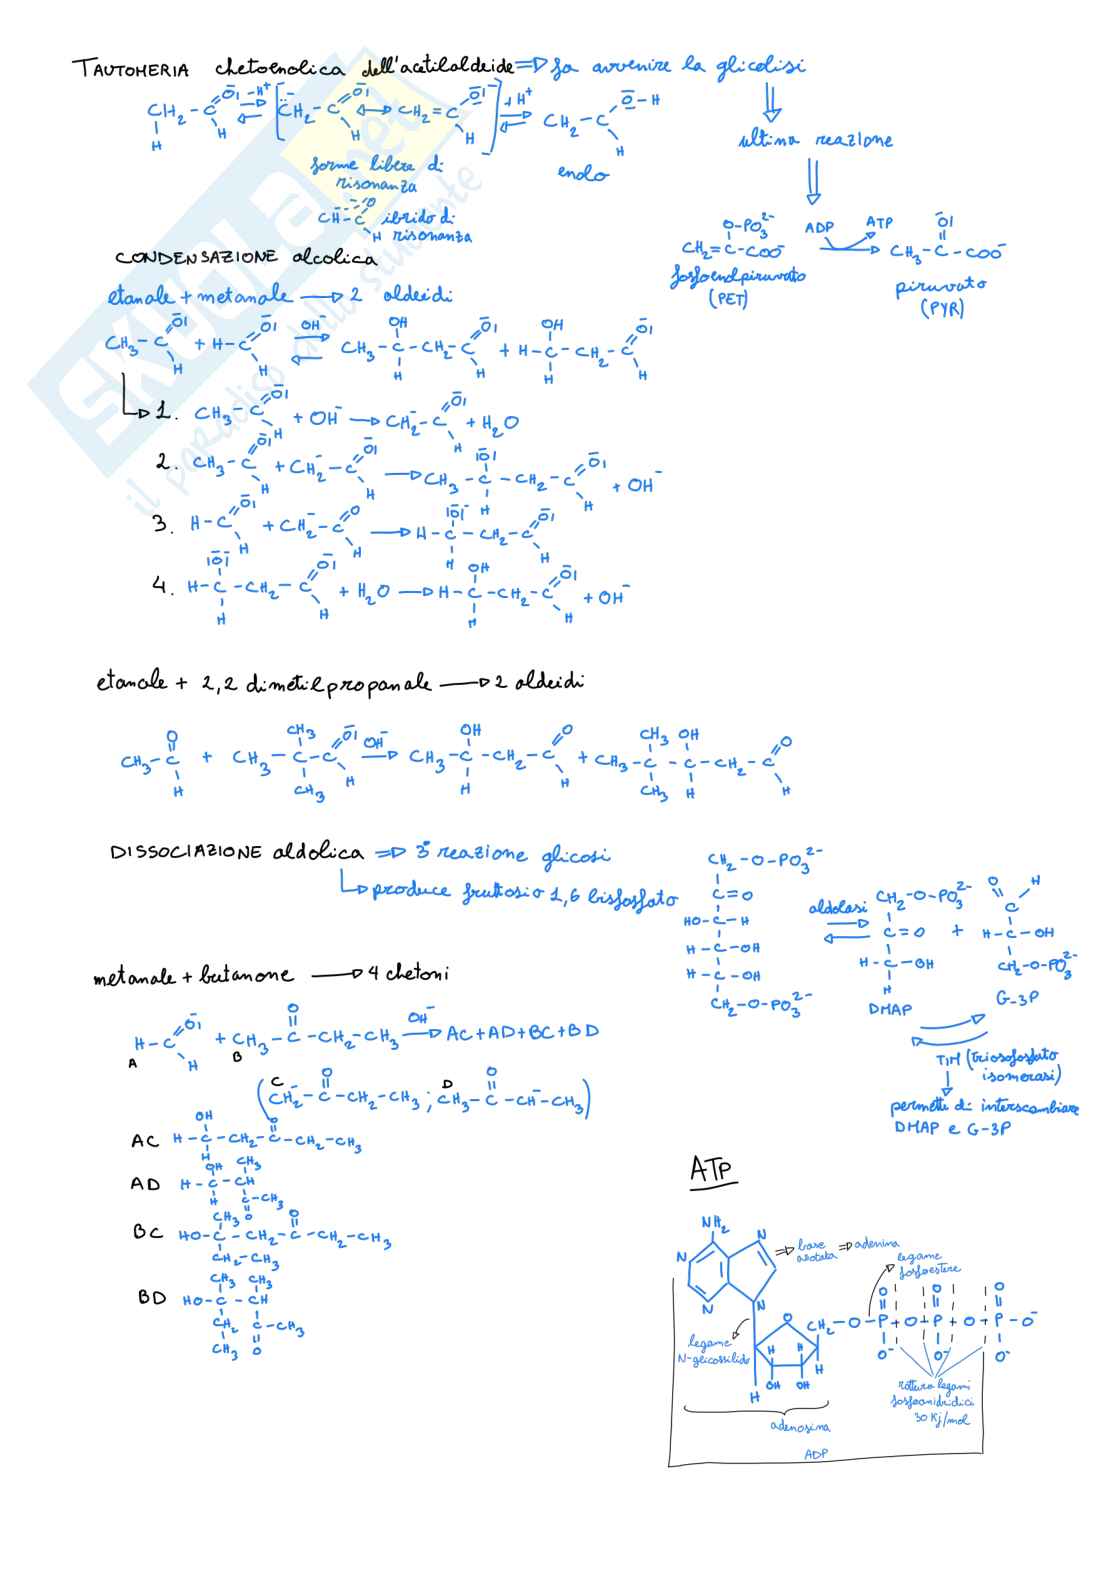 TAUTOMERIA chetoenolica dell'acetilaldeide ⇒ fa avvenire la glicolisi
CH2 - C O -H+ [CH2 - C O ↔ CH2 = C O] +H+ CH2 - C O - H
H H H H H
forme libere di
risonanza
endo
CH - C O ibrido di
H risonanza
ultima reazione
O-PO3 2- ADP ATP O
CH2 = C - COO- → CH3 - C - COO-
fosfoendpiruvato
(PET)
piruvato
(PYR)
CONDENSAZIONE alcolica
etanale + metanale → 2 aldeidi
CH3 - C O H + H - C O H OH- CH3 - C OH H - CH2 - C O H + H - C OH H - CH2 - C O H
1. CH3 - C O H + OH- → CH2- - C O H + H2O
2. CH3 - C O H + CH2- - C O H → CH3 - C O- H - CH2 - C O H + OH-
3. H - C O H + CH2- - C O H → H - C O- H - CH2 - C O H
4. H - C O- H - CH2 - C O H + H2O → H - C OH H - CH2 - C O H + OH-
etanale + 2,2 dimetilpropanale → 2 aldeidi
CH3 - C O H + CH3 - C CH3 CH3 - C O H OH- → CH3 - C OH H - CH2 - C O H + CH3 - C CH3 CH3 - C OH H - CH2 - C O H
DISSOCIAZIONE aldolica ⇒ 3° reazione glicosi
produce fruttosio 1,6 bisfosfato
CH2 - O - PO3 2-
C = O
HO - C - H
H - C - OH
H - C - OH
CH2 - O - PO3 2-
aldolasi
CH2 - O - PO3 2-
C = O
H - C - OH
H
DMAP
+
O H
C
H - C - OH
CH2 - O - PO3 2-
G-3P
TIM (triosofosfato
isomerasi)
permette di interscambiare
DMAP e G-3P
metanale + butanone → 4 chetoni
A H - C O H + B CH3 - C O - CH2 - CH3 OH- → AC + AD + BC + BD
(C CH2- - C O - CH2 - CH3 ; D CH3 - C O - CH- - CH3)
AC H - C OH H - CH2 - C O - CH2 - CH3
AD H - C OH H - CH CH3 C O - CH3
BC HO - C CH3 - CH2 - C O - CH2 - CH3
CH2 - CH3
BD HO - C CH3 - CH CH3
CH2 C - CH3
CH3 O
ATP
NH2
N N N N
⇒ base azotata ⇒ adenina
legame
fosfoestere
legame
N-glicossilido
O CH2 - O - P - O - P - O - P - O-
O O O
O- O- O-
H H H H
OH OH
rottura legami
fosfoanidridici
30 Kj/mol
adenosina
ADP
SKUOLA.net
il paradiso dello studente